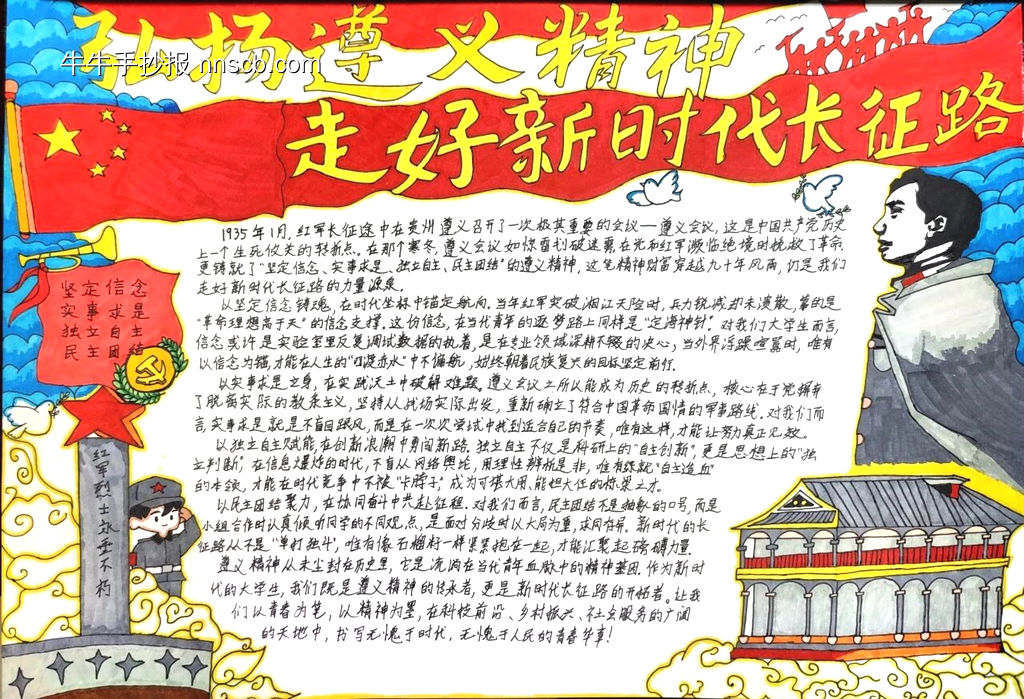 弘扬遵义精神
牛牛手抄报 nnscb.com
走好新时代长征路
坚定信念
实事求是
独立自主
民主团结
红军烈士永垂不朽
1935年1月,红军长征途中在贵州遵义召开了一次极其重要的会议—遵义会议,这是中国共产党历史
上一个生死攸关的转折点。在那个寒冬,遵义会议如惊雷划破迷雾,在党和红军濒临绝境时挽救了革命
更铸就了“坚定信念、实事求是、独立自主、民主团结”的遵义精神,这笔精神财富穿越九十年风雨,仍是我们
走好新时代长征路的力量源泉。
以坚定信念铸魂,在时代坐标中锚定航向。当年红军突破湘江天险时,兵力锐减却未溃散,靠的是
“革命理想高于天”的信念支撑。这份信念,在当代青年的逐梦路上同样是“定海神针”。对我们大学生而言,
信念或许是实验室里反复调试数据的执着,是在专业领域深耕不辍的决心;当外界浮躁喧嚣时,唯有
以信念为锚,才能在人生的中不偏航,始终朝着民族复兴的目标坚定前行。
以实事求是立身,在实践沃土中破解难题。遵义会议之所以能成为历史的转折点,核心在于党摒弃
了脱离实际的教条主义,坚持从战场实际出发,重新确立了符合中国革命国情的军事路线。对我们而
言,实事求是就是不盲目跟风,而是在一次次尝试中找到适合自己的节奏,唯有这样,才能让努力真正见效。
以独立自主赋能,在创新浪潮中勇闯新路。独立自主不仅是科研上的“自主创新”,更是思想上的“独
立判断”。在信息爆炸的时代,不盲从网络舆论,用理性辨析是非,唯有练就“自主造血”
的本领,才能在时代竞争中不被“卡脖子”,成为可堪大用、能担大任的栋梁之才。
以民主团结聚力,在协同奋斗中共赴征程。对我们而言,民主团结不是抽象的口号,而是
小组合作时认真倾听同学的不同观点,是面对分歧时以大局为重,求同存异。新时代的长
征路从不是“单打独斗”,唯有像石榴籽一样紧紧抱在一起,才能汇聚起磅礴力量.
遵义精神从未尘封在历史里,它是流淌在当代青年血脉中的精神基因。作为新时
代的大学生,我们既是遵义精神的传承者,更是新时代长征路的开拓者。让我
们以青春为笔,以精神为墨,在科技前沿、乡村振兴、社会服务的广阔
的天地中,书写无愧于时代,无愧于人民的青春华章!